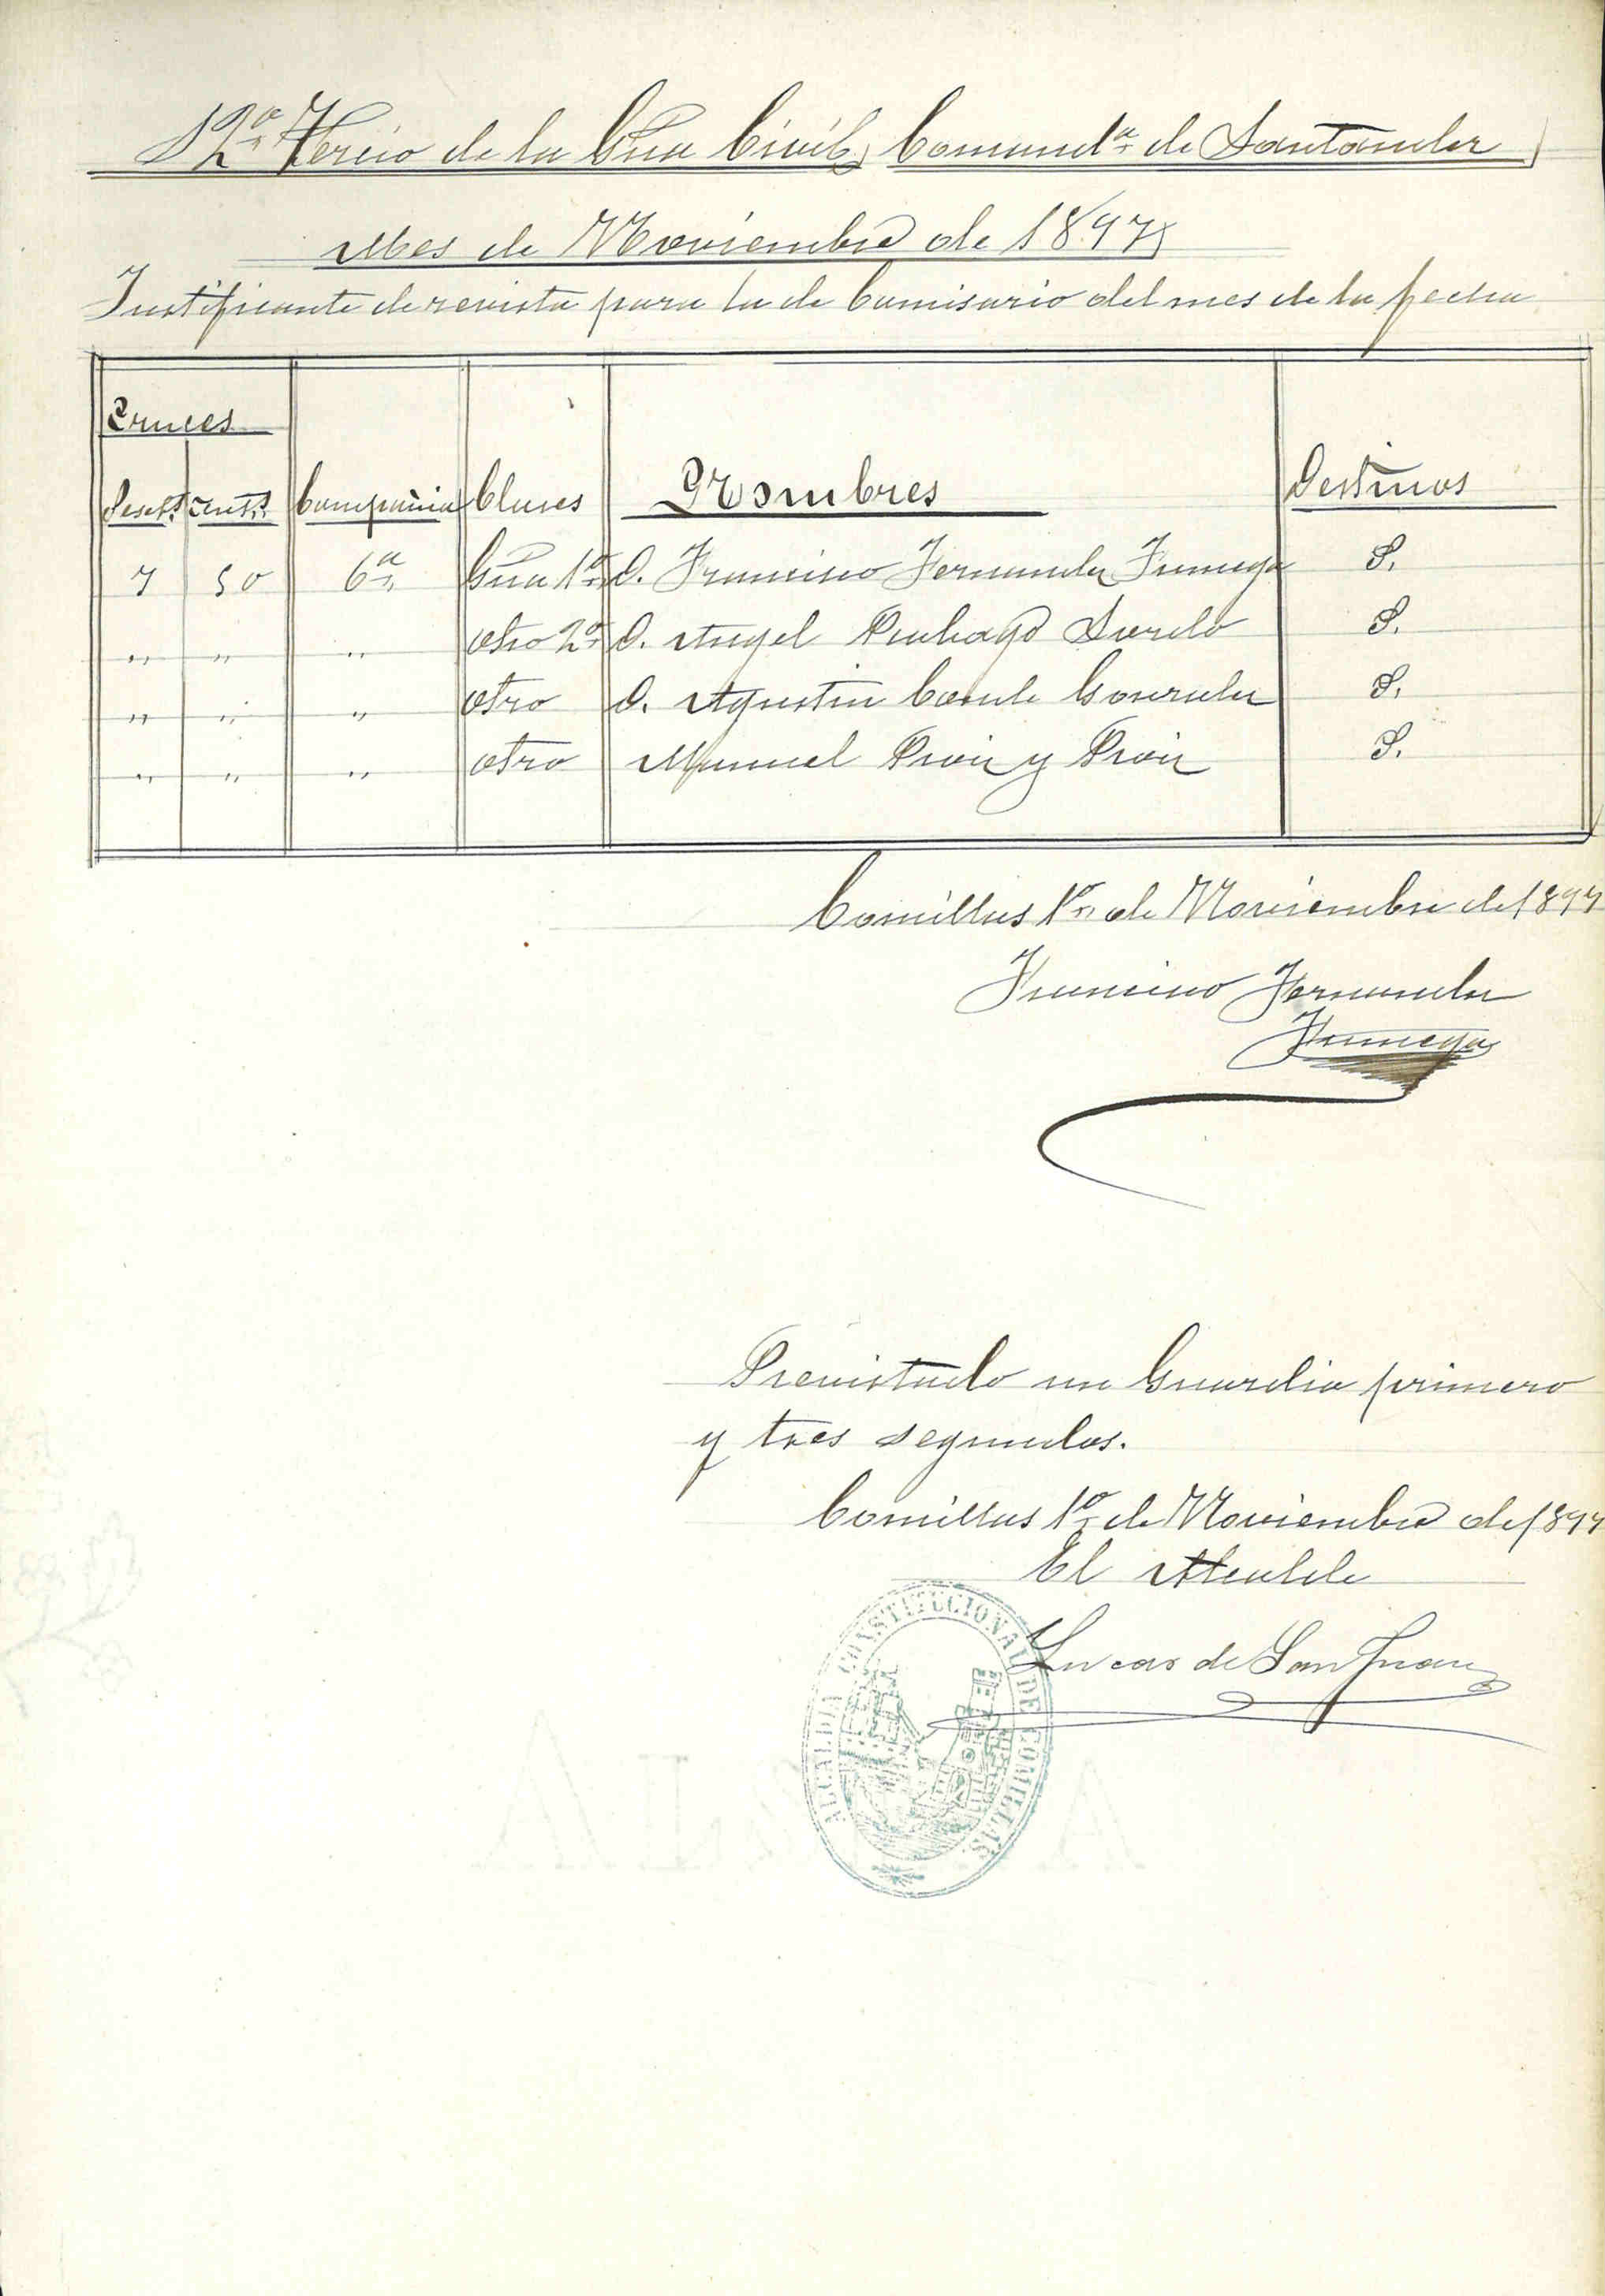 12º Tercio de la Gua Civil, Comandª de Santander
Mes de Noviembre de 1897
Justificante de revista para la de Comisario del mes de la fecha
Cruces
Peset.s Cents. Compañia Clases Nombres Destinos
7 50 6ª Gua 1º D. Francisco Fernandez Fumega P.
" " " Otro 2º D. Angel P.
" " " Otro D. Agustin Conde Gonzalez P.
" " " Otro Manuel y P.
Comillas 1º de Noviembre de 1897
Francisco Fernandez
Fumega
Revistado un Guardia primero
y tres segundos.
Comillas 1º de Noviembre de 1897
El Alcalde
Lucas de San Juan
ALCALDIA CONSTITUCIONAL DE COMILLAS